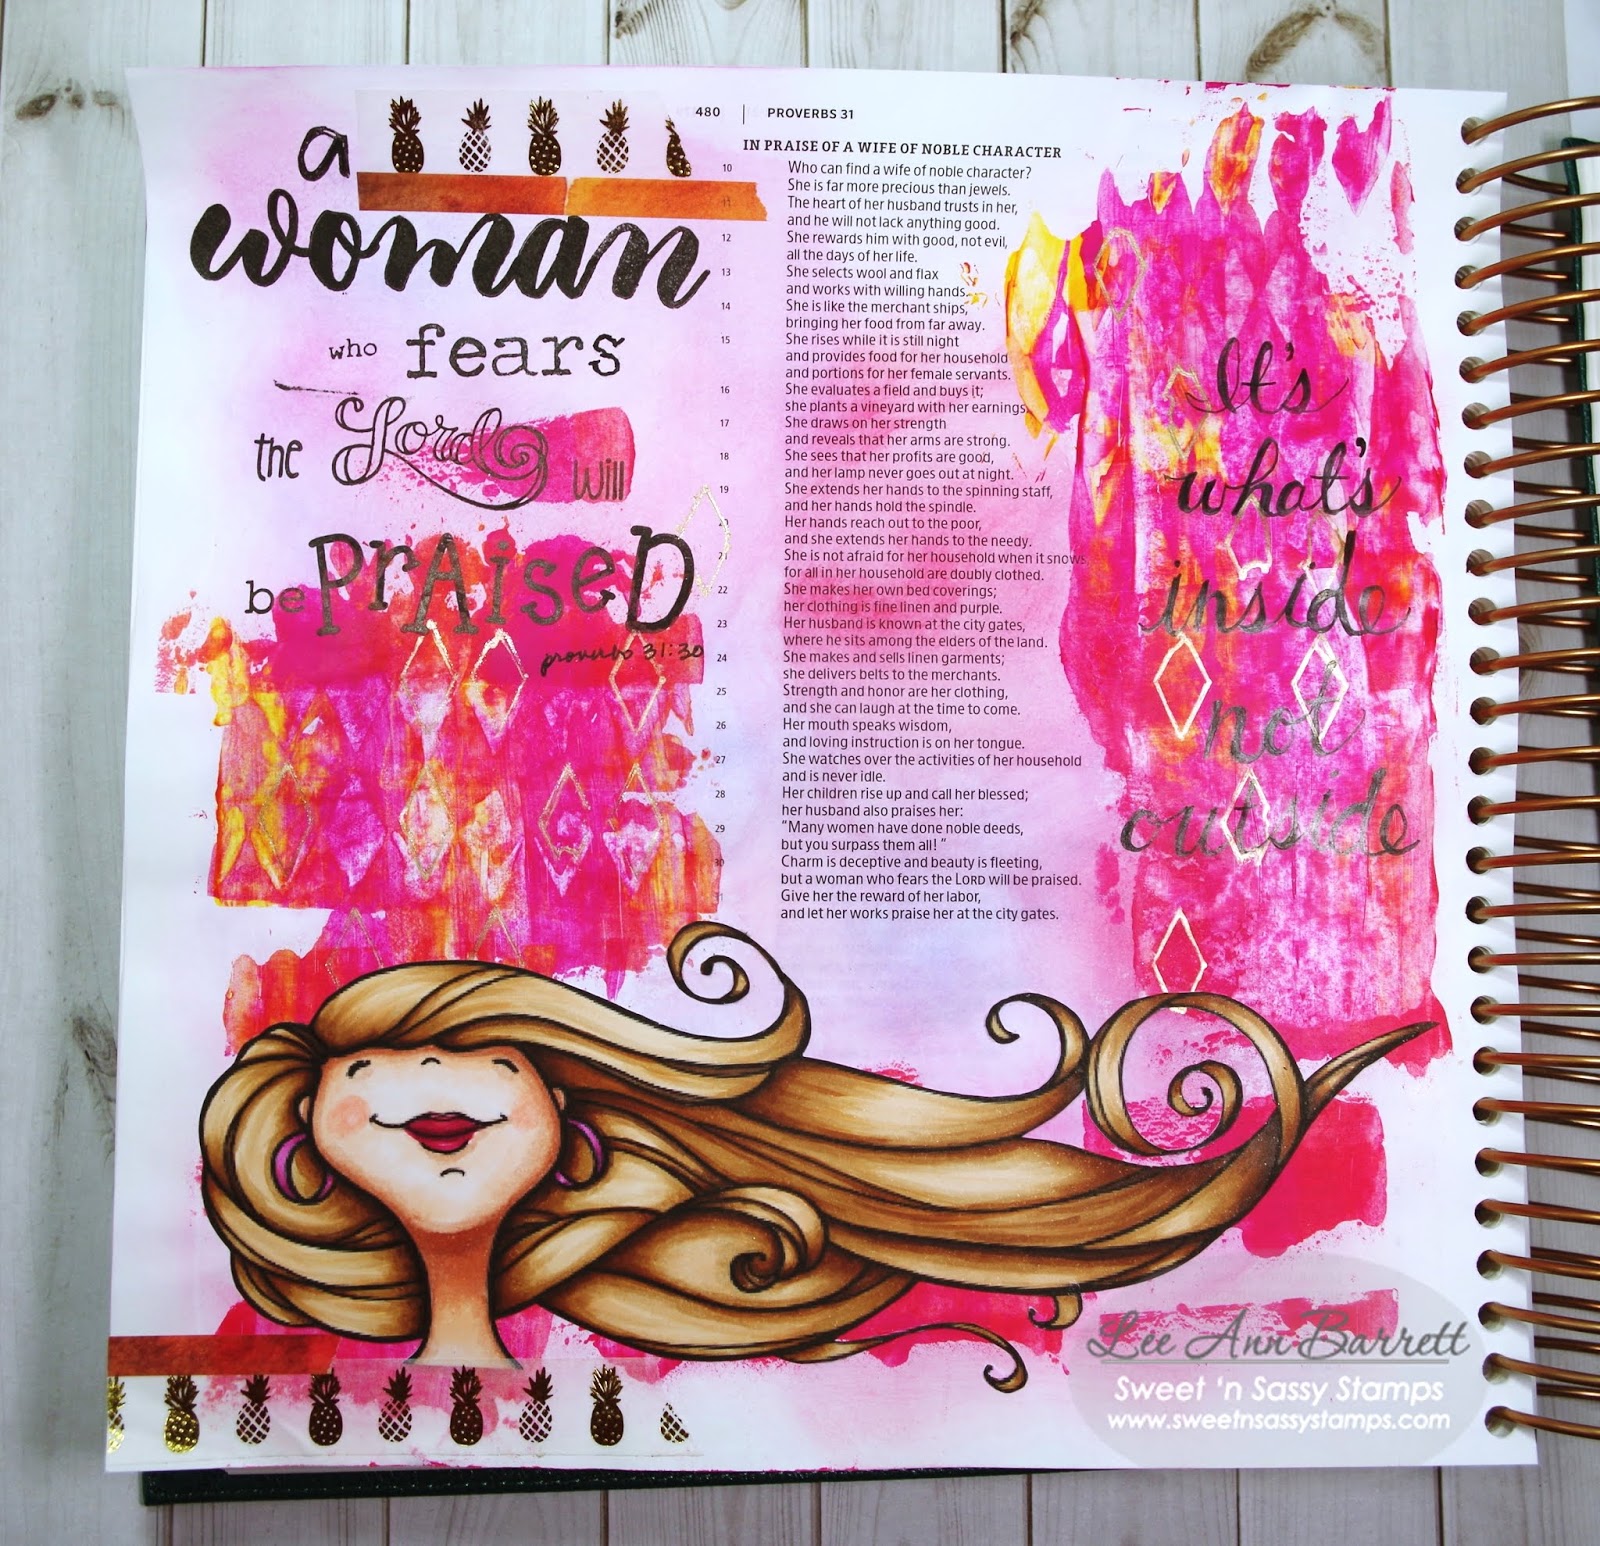 a
woman
who fears
the Lord will
be PrAiseD
proverbs 31:30
480 | PROVERBS 31
IN PRAISE OF A WIFE OF NOBLE CHARACTER
10 Who can find a wife of noble character?
She is far more precious than jewels.
11 The heart of her husband trusts in her,
and he will not lack anything good.
12 She rewards him with good, not evil,
all the days of her life.
13 She selects wool and flax
and works with willing hands.
14 She is like the merchant ships,
bringing her food from far away.
15 She rises while it is still night
and provides food for her household
and portions for her female servants.
16 She evaluates a field and buys it;
she plants a vineyard with her earnings.
17 She draws on her strength
and reveals that her arms are strong.
18 She sees that her profits are good,
and her lamp never goes out at night.
19 She extends her hands to the spinning staff,
and her hands hold the spindle.
20 Her hands reach out to the poor,
and she extends her hands to the needy.
21 She is not afraid for her household when it snows,
for all in her household are doubly clothed.
22 She makes her own bed coverings;
her clothing is fine linen and purple.
23 Her husband is known at the city gates,
where he sits among the elders of the land.
24 She makes and sells linen garments;
she delivers belts to the merchants.
25 Strength and honor are her clothing,
and she can laugh at the time to come.
26 Her mouth speaks wisdom,
and loving instruction is on her tongue.
27 She watches over the activities of her household
and is never idle.
28 Her children rise up and call her blessed;
her husband also praises her:
29 "Many women have done noble deeds,
but you surpass them all!"
30 Charm is deceptive and beauty is fleeting,
but a woman who fears the LORD will be praised.
31 Give her the reward of her labor,
and let her works praise her at the city gates.
It's
what's
inside
not
outside
Lee Ann Barrett
Sweet 'n Sassy Stamps
www.sweetnsassystamps.com